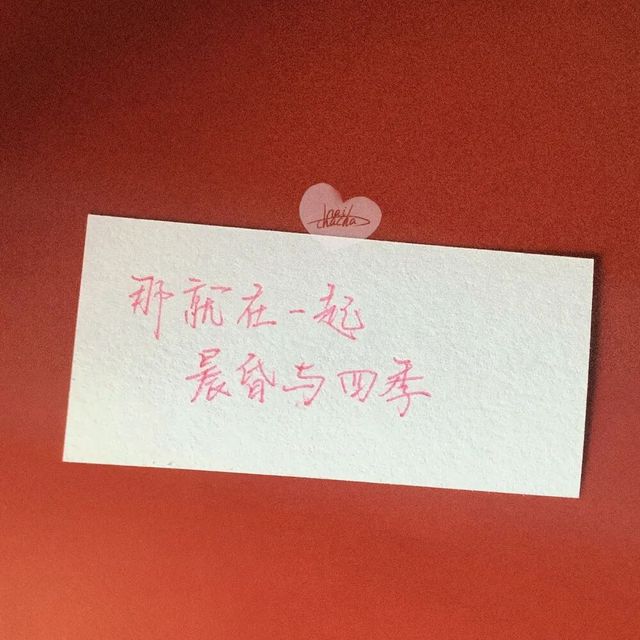 那就在一起
晨昏与四季